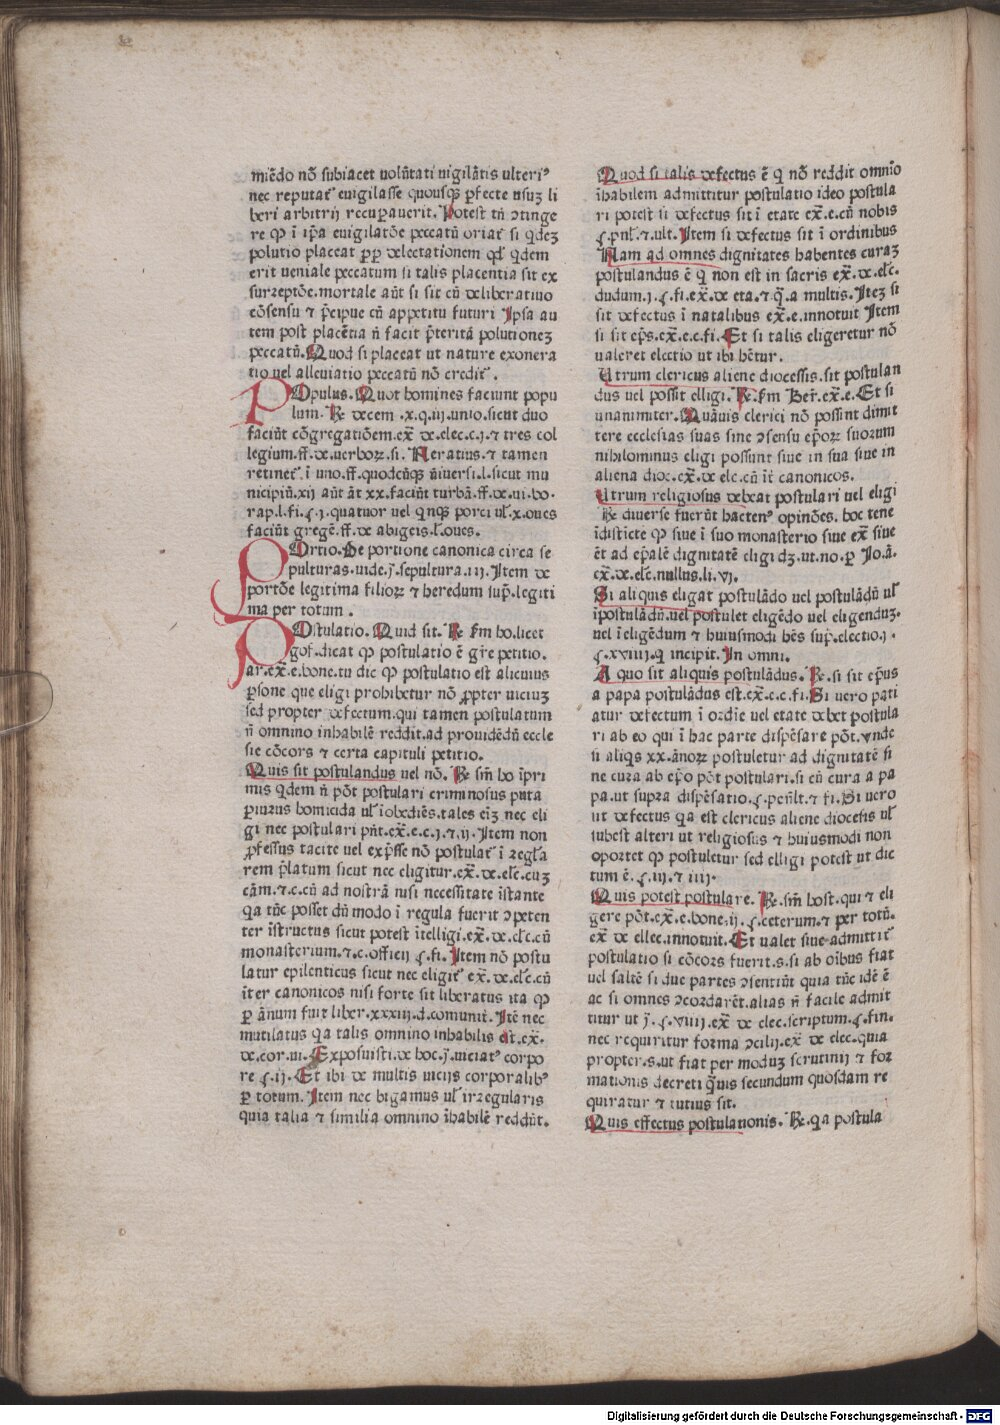 miẽdo nõ subiacet volũtati uigilãtis ulteriꝰ
nec reputat᷑ euigilasse quousqꝫ ꝑfecte usuꝫ li
beri arbitrij recuꝑauerit. Potest tñ ↄtinge
re ꝙ ĩ ip̃a euigilatõe peccatũ oriat᷑ si qdeꝫ
polutio placeat ꝓꝑ delectationem qd̃ qdem
erit ueniale peccatum si talis placentia sit ex
surreptõe.mortale aũt si sit cũ deliberatiuo
cõsensu ⁊ p̃cipue cũ appetitu futuri Ipsa au
tem post placẽtia ñ facit p̃teritã polutionez
peccatũ. Quod si placeat ut nature exonera
tio uel alleuiatio peccatũ nõ credit᷑.
POpulus. Quot homines faciunt popu
lum. ℞ decem .x.q.iij.unio.sicut duo
faciũt cõgregatiõem.ex̃ de elec.c.j.⁊ tres col
legium.ff.de.uerboꝝ.si. Neratius.⁊ tamen
retinet᷑ ĩ uno.ff.quodcũqꝫ ũiuersi.l.sicut mu
nicipiũ.xij aũt ãt xx.faciũt turbã.ff.de.ui.bo.
rap.l.fi.ꞔ.j.quatuor uel qnqꝫ porci ul᷑.x.oues
faciũt gregẽ.ff.de abigeis.l.oues.
POrtio. De portione canonica circa se
pulturas.uide.j̃.sepultura.iij. Item de
portõe legitima filioꝝ ⁊ heredum sup̃.legiti
ma per totum.
POstulatio. Quid sit. ℞ s̃m ho.licet
gof.dicat ꝙ postulatio ẽ gr̃e petitio.
ar.ex̃.e.bone.tu dic ꝙ postulatio est alicuius
ꝑsone que eligi prohibetur nõ ꝓpter uiciuꝫ
sed propter defectum.qui tamen postulatum
ñ omnino inhabilẽ reddit.ad prouidẽdũ eccle
sie cõcors ⁊ certa capituli petitio.
Quis sit postulandus uel nõ. ℞ s̃m ho ĩpri
mis qdem ñ põt postulari criminosus puta
ꝑiurus homicida ul᷑ iobediẽs.tales eĩꝫ nec eli
gi nec postulari pñt.ex̃.e.c.j.⁊.ij. Item non
ꝓfessus tacite uel exp̃sse nõ postulat᷑ ĩ regl̃a
rem p̃latum sicut nec eligitur.ex̃.de.elc̃.cuꝫ
cãm.⁊.c.cũ ad nostrã nisi necessitate ĩstante
qa tũc posset dũ modo ĩ regula fuerit ↄpeten
ter ĩstructus sicut potest ĩtelligi.ex̃.de.elc̃.cũ
monasterium.⁊.c.officij ꞔ.fi. Item nõ postu
latur epilenticus sicut nec eligit᷑ ex̃.de.elc̃.cũ
ĩter canonicos nisi forte sit liberatus ita ꝙ
ꝑ ãnum fuit liber.xxxiij.d.comunit᷑. Itẽ nec
mutilatus qa talis omnino inhabilis est.ex̃.
de.cor.ui. Exposuisti.de hoc.j̃.uiciatꝰ corpo
re ꞔ.ij. Et ibi de multis uicijs corporalibꝰ
ꝑ totum. Item nec bigamus ul᷑ irregularis
quia talia ⁊ similia omnino ĩhabilẽ reddũt.
Quod si talis defectus ẽ q nõ reddit omnĩo
ĩhabilem admittitur postulatio ideo postula
ri potest si defectus sit ĩ etate ex̃.e.cũ nobis
ꞔ.pñl᷑.⁊.ult. Item si defectus sit ĩ ordinibus
Nam ad omnes dignitates habentes curaꝫ
postulandus ẽ q non est in sacris ex̃.de.elc̃.
dudum.j.ꞔ.fi.ex̃.de eta.⁊ q̃.a multis. Iteꝫ si
sit defectus ĩ natalibus ex̃.e.innotuit Item
si sit ep̃s.ex̃.e.c.fi. Et si talis eligeretur nõ
ualeret electio ut ibi hẽtur.
Utrum clericus aliene diocessis.sit postulan
dus uel possit elligi. ℞.s̃m Ber̃.ex̃.e. Et si
unanimiter. Quãuis clerici nõ possint dimit
tere ecclesias suas sine ↄsensu ep̃oꝝ suorum
nihilominus eligi possunt siue in sua siue in
aliena dioc.ex̃.de elc.cũ ĩt᷑ canonicos.
Utrum religiosus debeat postulari uel eligi
℞ diuerse fuerũt hactenꝰ opinões. hoc tene
ĩdistĩcte ꝙ siue ĩ suo monasterio siue ex̃ siue
ẽt ad ep̃alẽ dignitatẽ eligi dꝫ.ut.no.ꝑ Io.ã.
ex̃.de.elc̃.nullus.li.vi.
Si aliquis eligat postulãdo uel postulãdũ ul᷑
ĩpostulãdũ.uel postulet eligẽdo uel eligenduꝫ.
uel ĩ eligẽdum ⁊ huiusmodi hẽs sup̃.electio.j.
ꞔ.xviiij.q incipit. In omni.
A quo sit aliquis postulãdus. ℞.si sit ep̃us
a papa postulãdus est.ex̃.e.c.fi. Si uero pati
atur defectum ĩ ordĩe uel etate debet postula
ri ab eo qui ĩ hac parte dispẽsare põt.vnde
si aliqs xx.ãnoꝝ postuletur ad dignitatẽ si
ne cura ab ep̃o põt postulari.si cũ cura a pa
pa.ut supra dispẽsatio.ꞔ.penl̃t.⁊ fi. Si uero
ut defectus qa est clericus aliene diocesis ul᷑
subest alteri ut religiosus ⁊ huiusmodi non
oportet ꝙ postuletur sed elligi potest ut dic
tum ẽ.ꞔ.iij.⁊ iiij.
Quis potest postulare. ℞.s̃m host.qui ⁊ eli
gere põt.ex̃.e.bone.ij.ꞔ.ceterum.⁊ per totũ.
ex̃ de ellec.innotuit. Et ualet siue admittit᷑
postulatio si cõcors fuerit.s.si ab oĩbus fiat
uel saltẽ si due partes ↄsentiũt quia tũc idẽ ẽ
ac si omnes ↄcordarẽt.alias ñ facile admit
titur ut j̃.ꞔ.viiij.ex̃ de elec.scriptum.ꞔ.fin.
nec requiritur forma ↄcilij.ex̃ de elec.quia
propter.s.ut fiat per moduꝫ scrutinij ⁊ for
mationis decreti q̃uis secundum quosdam re
quiratur ⁊ tutius sit.
Quis effectus postulationis. ℞.qa postula
Digitalisierung gefördert durch die Deutsche Forschungsgemeinschaft - DFG